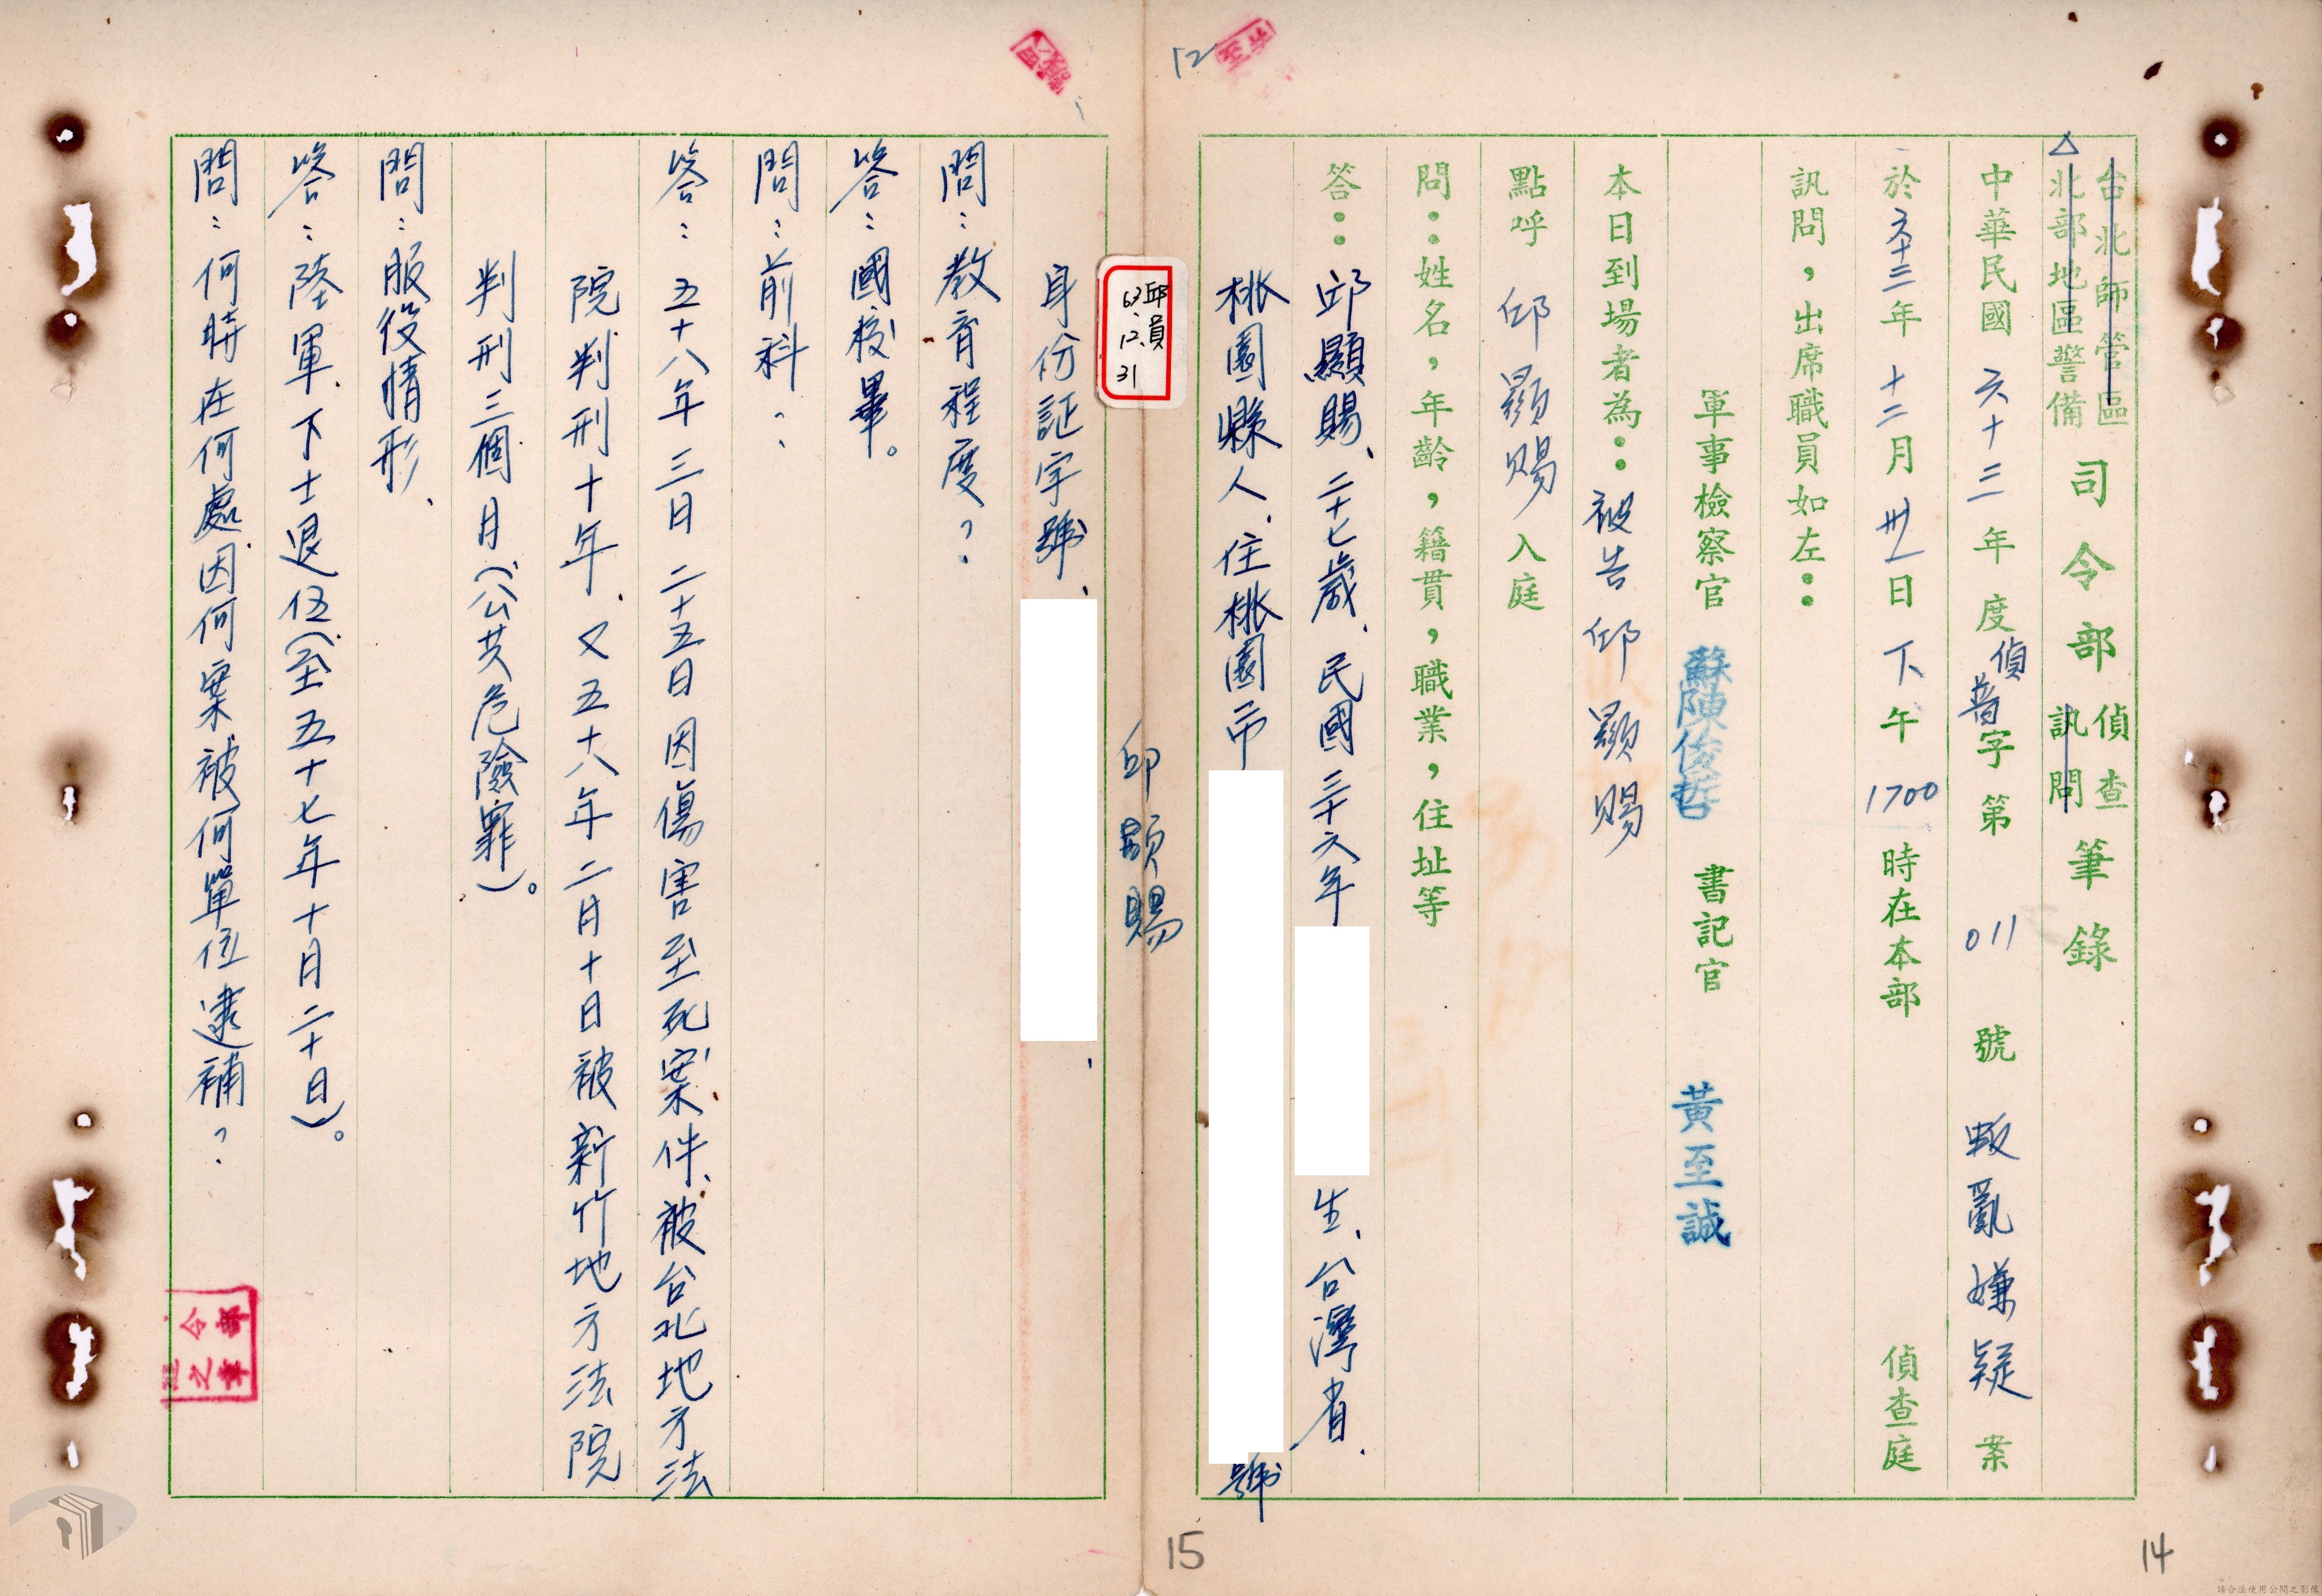 台北師管區
北部地區警備
司令部
偵查
訊問
筆錄
中華民國六十三年度偵普字第011號叛亂嫌疑案
於六十三年十二月卅一日下午1700時在本部偵查庭
訊問，出席職員如左：
軍事檢察官 蘇陳俊哲 書記官 黃至誠
本日到場者為：被告邱顯賜
點呼 邱顯賜入庭
問：姓名，年齡，籍貫，職業，住址等
答：邱顯賜、二十七歲、民國三十六年 生、台灣省、
桃園縣人、住桃園市 號
12
邱員
63.12.31
邱顯賜
身份証字號、
問：教育程度？
答：國校畢。
問：前科：
答：五十八年三日二十五日因傷害至死案件、被台北地方法
院判刑十年、又五十八年二月十日被新竹地方法院
判刑三個月（公共危險罪）。
問：服役情形、
答：陸軍、下士退伍（至五十七年十月二十日）。
問：何時在何處因何案被何單位逮補？
15
14
請合法使用公開之影像